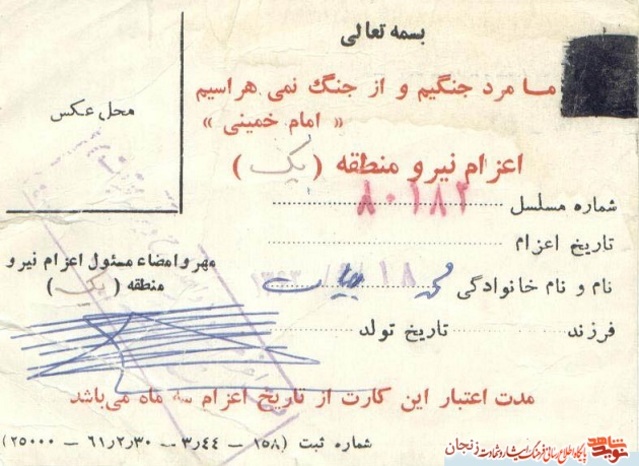 بسمه تعالی
ما مرد جنگیم و از جنگ نمی هراسیم
« امام خمینی »
محل عکس
اعزام نیرو منطقه ( یک )
شماره مسلسل ۸۰۱۸۲
تاریخ اعزام
مهر و امضاء مسئول اعزام نیرو
منطقه ( یک )
نام و نام خانوادگی
فرزند تاریخ تولد
مدت اعتبار این کارت از تاریخ اعزام سه ماه می‌باشد
شماره ثبت (۱۵۸ – ۳٫۴۴ – ۶۱٫۲٫۳۰ – ۲۵۰۰۰)
نوید شاهد پایگاه اطلاع رسانی فرهنگ ایثار و شهادت زنجان